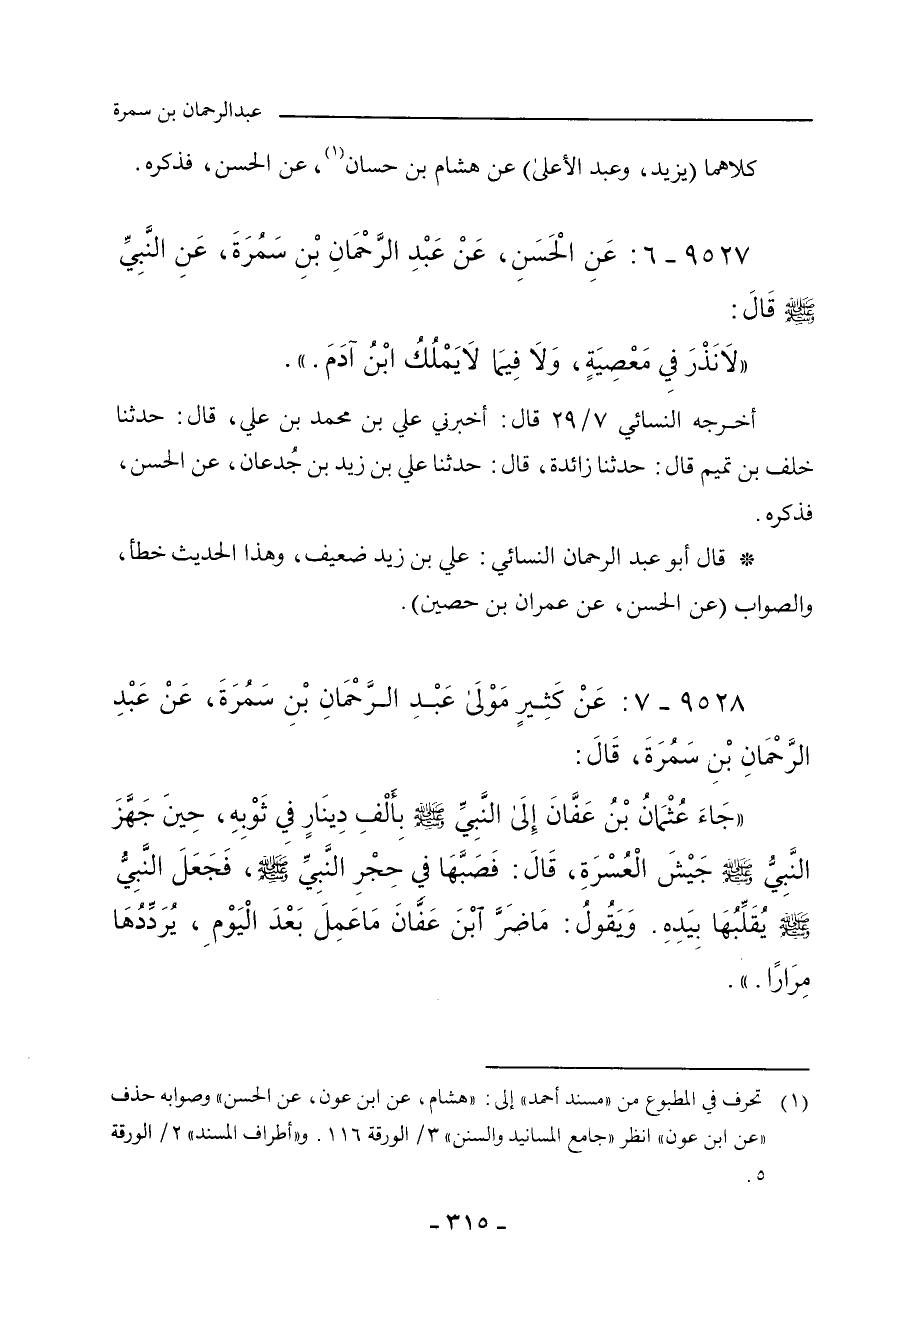 عبدالرحمان بن سمرة
كلاهما (يزيد، وعبد الأعلىٰ) عن هشام بن حسان(١)، عن الحسن، فذكره.
٩٥٢٧ - ٦: عَنِ الْحَسَنِ، عَنْ عَبْدِ الرَّحْمَانِ بْنِ سَمُرَةَ، عَنِ النَّبِيِّ
ﷺ قَالَ:
«لَا نَذْرَ فِي مَعْصِيَةٍ، وَلَا فِيمَا لَا يَمْلُكُ ابْنُ آدَمَ.».
أخـرجه النسائي ٢٩/٧ قال: أخبرني علي بن محمد بن علي، قال: حدثنا
خلف بن تميم قال: حدثنا زائدة، قال: حدثنا علي بن زيد بن جُدعان، عن الحسن،
فذكره.
* قال أبو عبد الرحمان النسائي: علي بن زيد ضعيف، وهذا الحديث خطأ،
والصواب (عن الحسن، عن عمران بن حصين).
٩٥٢٨ - ٧: عَنْ كَثِيرٍ مَوْلَىٰ عَبْـدِ الـرَّحْمَانِ بْنِ سَمُرَةَ، عَنْ عَبْدِ
الرَّحْمَانِ بْنِ سَمُرَةَ، قَالَ:
«جَاءَ عُثْمَانُ بْنُ عَفَّانَ إِلَىٰ النَّبِيِّ ﷺ بِأَلْفِ دِينَارٍ فِي ثَوْبِهِ، حِينَ جَهَّزَ
النَّبِيُّ ﷺ جَيْشَ الْعُسْرَةِ، قَالَ: فَصَبَّهَا فِي حِجْرِ النَّبِيِّ ﷺ، فَجَعَلَ النَّبِيُّ
ﷺ يُقَلِّبُهَا بِيَدِهِ. وَيَقُولُ: مَاضَرَّ آبْنَ عَفَّانَ مَاعَمِلَ بَعْدَ الْيَوْمِ، يُرَدِّدُهَا
مِرَارًا.».
(١) تحرف في المطبوع من «مسند أحمد» إلى: «هشام، عن ابن عون، عن الحسن» وصوابه حذف
«عن ابن عون» انظر «جامع المسانيد والسنن» ٣/ الورقة ١١٦. و«أطراف المسند» ٢/ الورقة
٥.
- ٣١٥ -